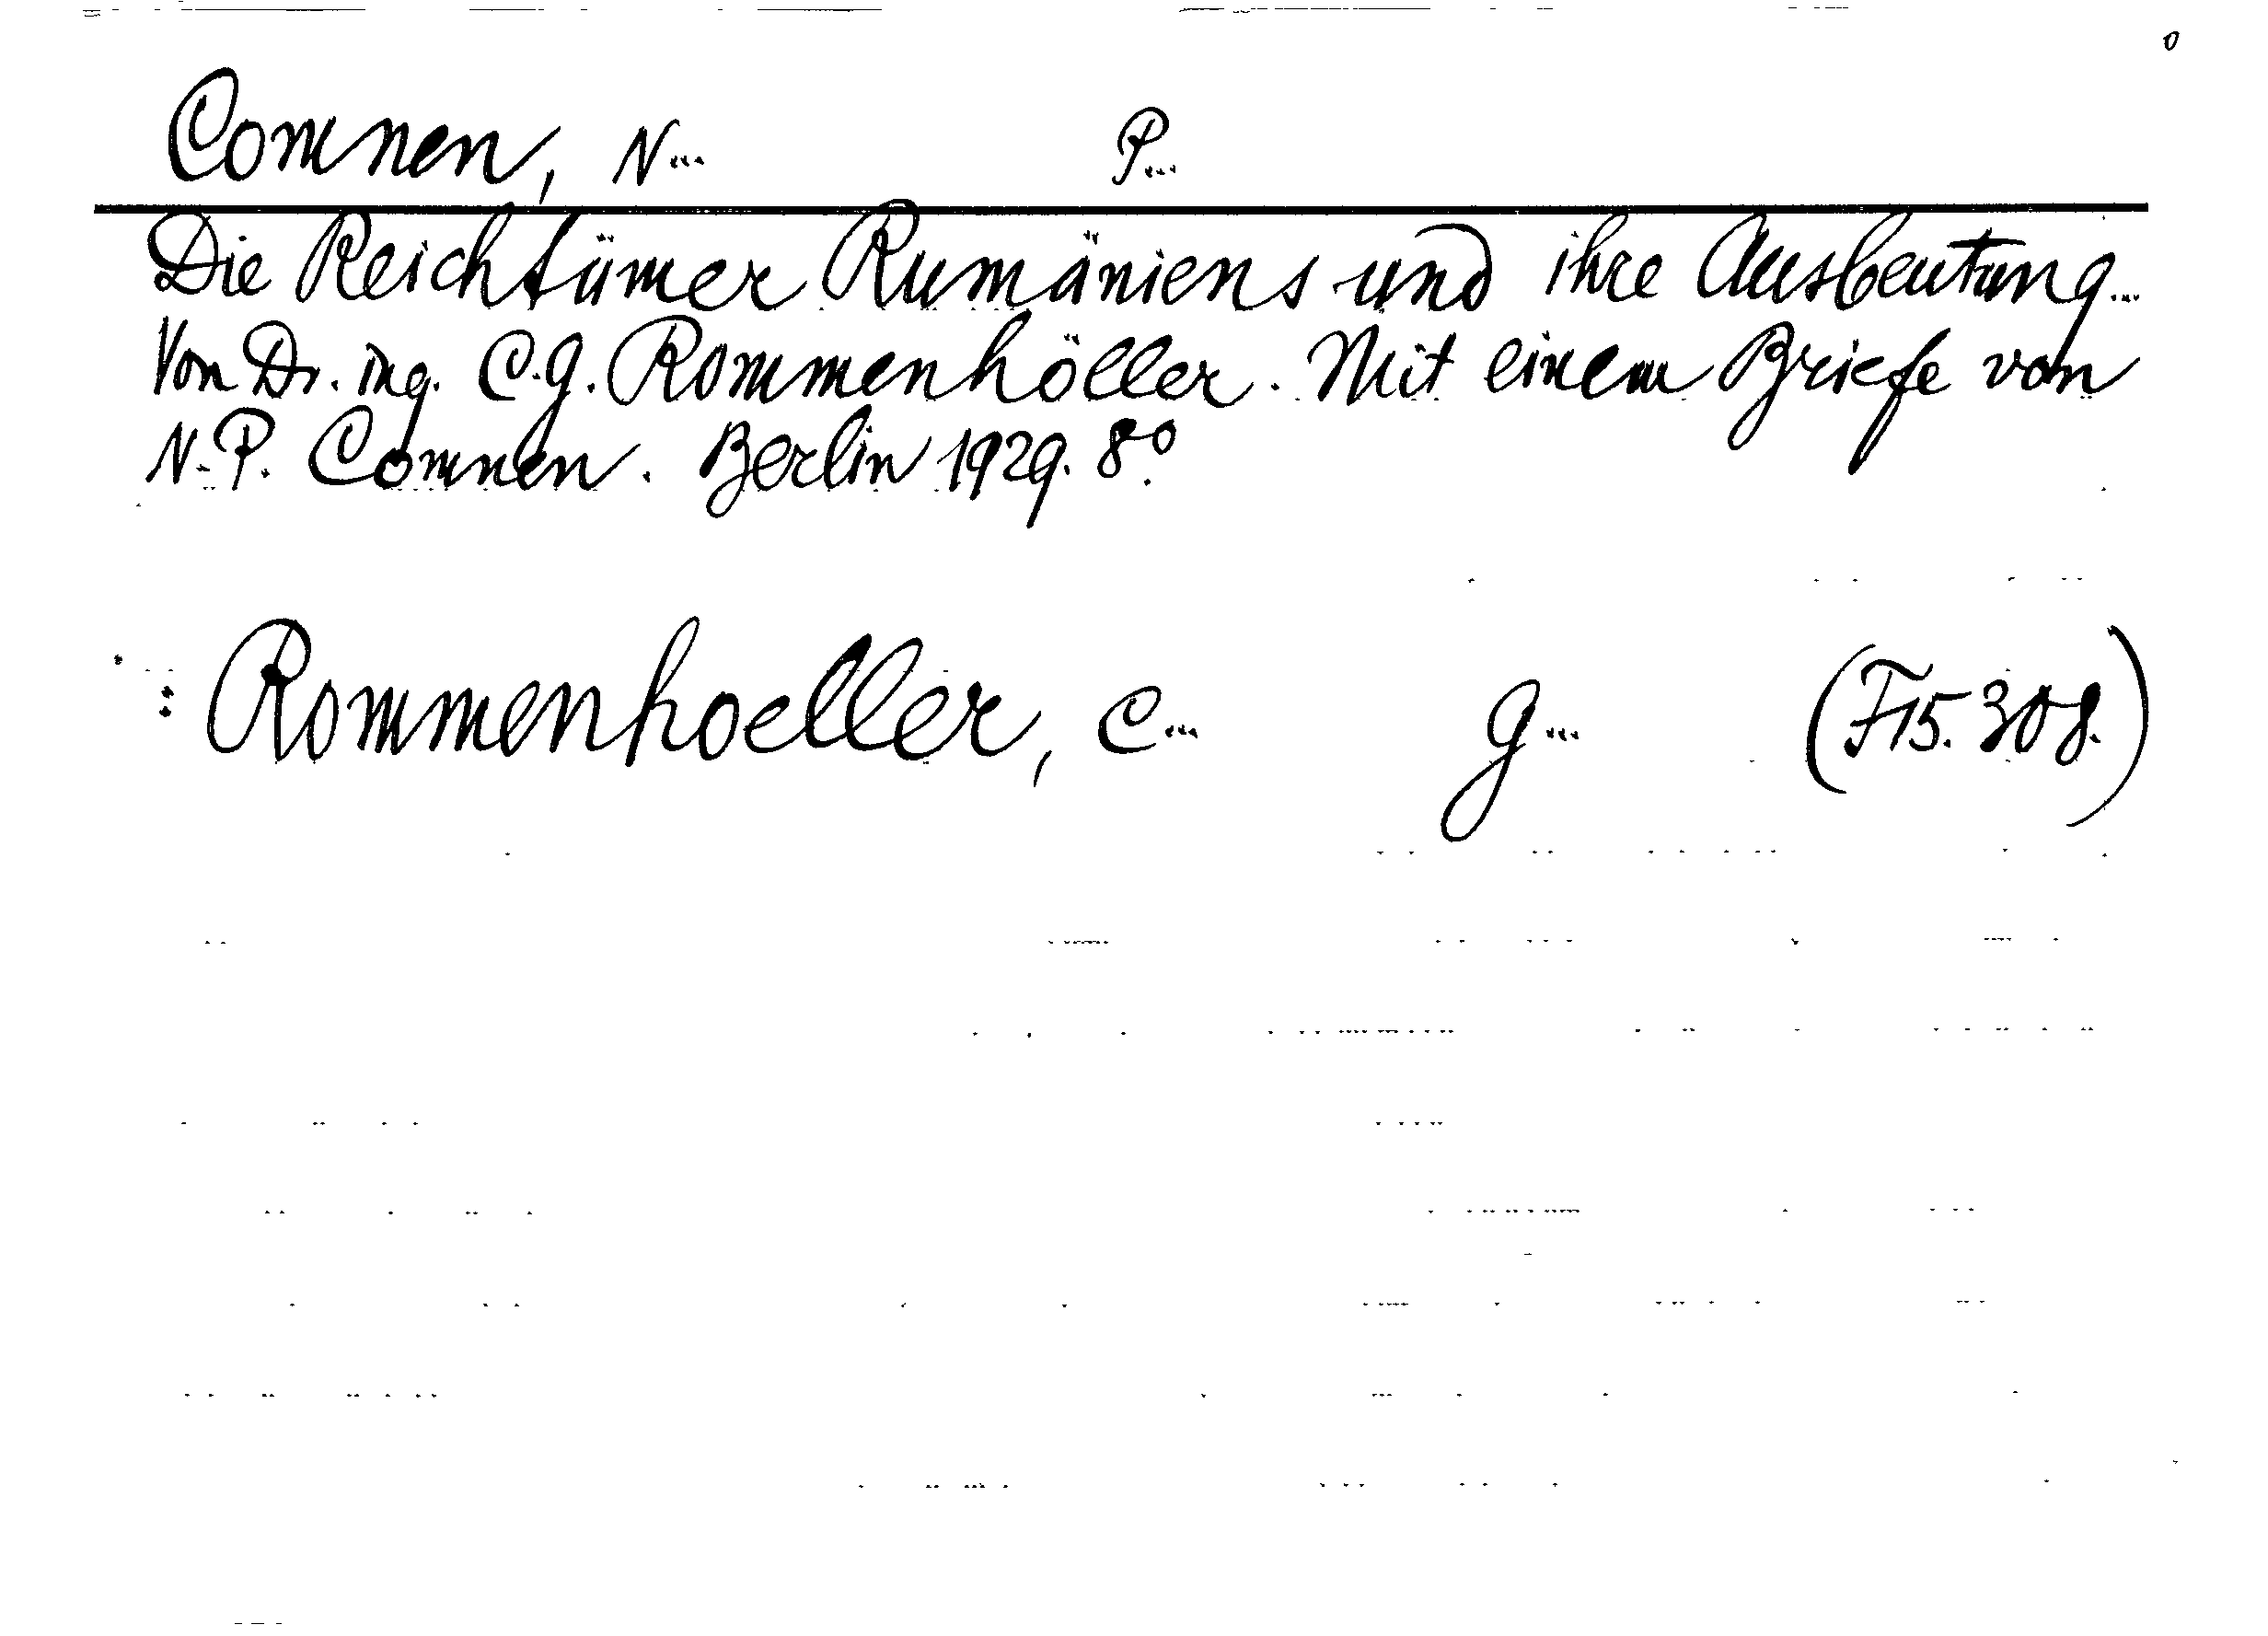 Comnen, N... P...
Die Reichtümer Rumäniens und ihre Ausbeutung...
Von Dr. ing. C.G. Rommenhöller. Mit einem Briefe von
N.P. Comnen. Berlin 1929. 8°.
: Rommenhoeller, C... G... (F15.308.)